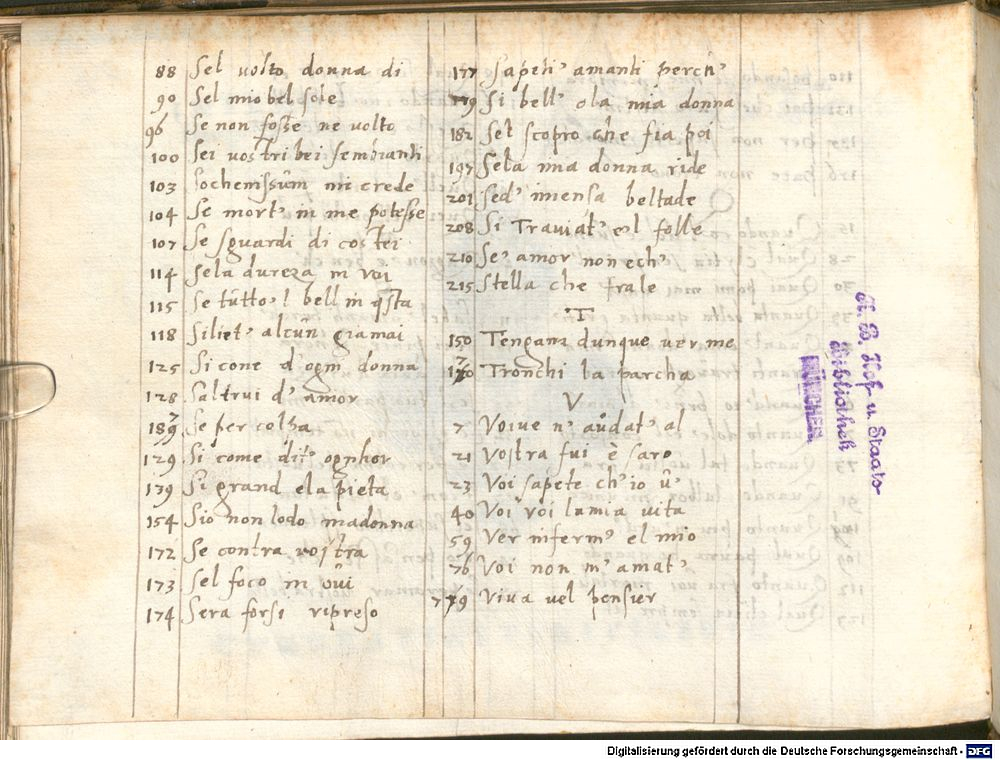 88 Sel volto donna di
90 Sel mio bel sole
96 Se non fosse ne volto
100 Sei vostri bei sembianti
103 Sochenissūm mi crede
104 Se mort' in me potesse
107 Se sguardi di costei
114 Sela dureza in voi
115 Se tutto 'l bell in qsta
118 Siliet' alcūn giamai
125 Si cone d'ogni donna
128 Saltrui d'amor
Se per colpa
129 Si come dit' ognhor
139 Si grand ela pieta
154 Sio non lodo madonna
172 Se contra vostra
173 Sel foco in
174 Sera forsi ripreso
177 Sapeti amanti perch'
179 Si bell' ola mia donna
182 Sel scopro che fia poi
197 Sela mia donna ride
201 Sed' imensa beltade
208 Si Traviat' e'l folle
210 Se' amor non ech'
215 Stella che frale
T
150 Tengam dunque ver me
170 Tronchi la parcha
V
7 Voiue n' aūdat' al
21 Vostra fui è saro
23 Voi sapete ch'io ū'
40 Voi voi lamia vita
59 Ver inferm' el mio
76 Voi non m' amat'
79 Viva vel pensier
K. B. Hof u. Staats
Bibliothek
MÜNCHEN
Digitalisierung gefördert durch die Deutsche Forschungsgemeinschaft - DFG